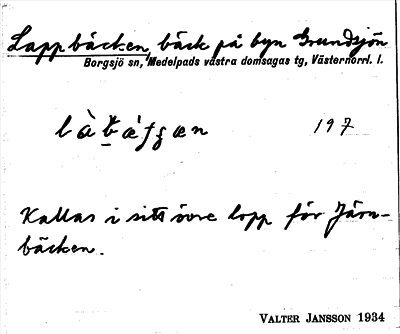 Lappbäcken, bäck på byn Grundsjön
Borgsjö sn, Medelpads västra domsagas tg, Västernorrl. l.
197
Kallas i sitt övre lopp för Järn-
bäcken.
VALTER JANSSON 1934